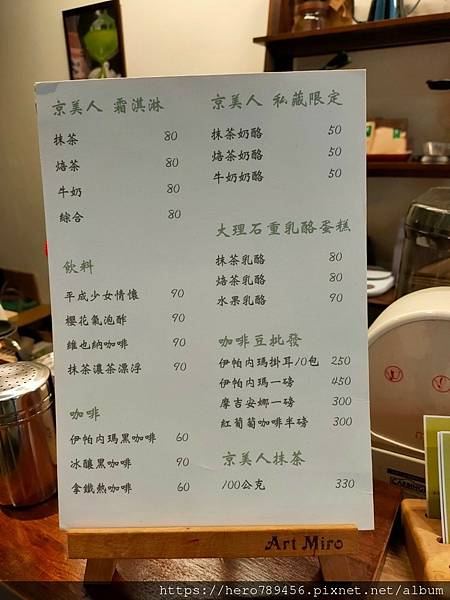 京美人 霜淇淋
抹茶 80
焙茶 80
牛奶 80
綜合 80
飲料
平成少女情懷 90
櫻花氣泡酢 90
維也納咖啡 90
抹茶濃茶漂浮 90
咖啡
伊帕內瑪黑咖啡 60
冰釀黑咖啡 90
拿鐵熱咖啡 60
京美人 私藏限定
抹茶奶酪 50
焙茶奶酪 50
牛奶奶酪 50
大理石重乳酪蛋糕
抹茶乳酪 80
焙茶乳酪 80
水果乳酪 90
咖啡豆批發
伊帕內瑪掛耳10包 250
伊帕內瑪一磅 450
摩吉安娜一磅 300
紅葡萄咖啡半磅 300
京美人抹茶
100公克 330
Art Miro
https://hero789456.pixnet.net/album